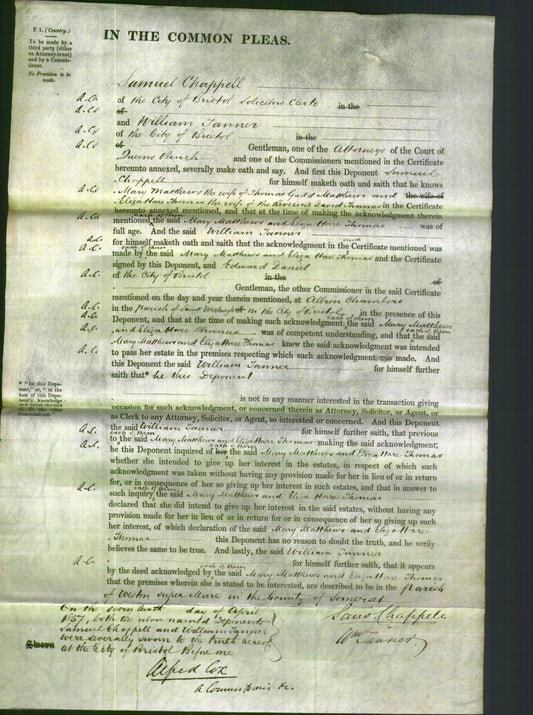 F 1. (Country.)
To be made by a
third party (either
an Attorney or not)
and by a Commis-
sioner.
No Provision to be
made.
IN THE COMMON PLEAS.
Samuel Chappell
of the City of Bristol Solicitors Clerk in the
of
and William Tanner
of the City of Bristol in the
of Gentleman, one of the Attorneys of the Court of
Queens Bench and one of the Commissioners mentioned in the Certificate
hereunto annexed, severally make oath and say. And first this Deponent Samuel
Chappell for himself maketh oath and saith that he knows
Mary Matthews the wife of Thomas Gadd Matthews and the wife of
Eliza Hare Thomas the wife of the Reverend David Thomas in the Certificate
hereunto annexed mentioned, and that at the time of making the acknowledgment therein
mentioned the said Mary Matthews and Eliza Hare Thomas each of them was of
full age. And the said William Tanner
for himself maketh oath and saith that the acknowledgment in the Certificate mentioned was
made by the said Mary Matthews and Eliza Hare Thomas and the Certificate
signed by this Deponent, and Edward Daniel
of the City of Bristol in the of
Gentleman, the other Commissioner in the said Certificate
mentioned on the day and year therein mentioned, at Albion Chambers
in the parish of Saint Werburgh in the City of Bristol in the presence of this
Deponent, and that at the time of making such acknowledgment the said Mary Matthews
and Eliza Hare Thomas was of competent understanding, and that the said
Mary Matthews and Eliza Hare Thomas knew the said acknowledgment was intended
to pass her estate in the premises respecting which such acknowledgment was made. And
this Deponent the said William Tanner for himself further
saith that* he this Deponent
* "he this Depo-
nent," or, "to the
best of this Depo-
nent's knowledge
and belief, the said
C. D. the other
Commissioner."
is not in any manner interested in the transaction giving
occasion for such acknowledgment, or concerned therein as Attorney, Solicitor, or Agent, or
as Clerk to any Attorney, Solicitor, or Agent, so interested or concerned. And this Deponent
the said William Tanner for himself further saith, that previous
to the said Mary Matthews and Eliza Hare Thomas making the said acknowledgment,
he this Deponent inquired of her the said Mary Matthews and Eliza Hare Thomas
whether she intended to give up her interest in the estates, in respect of which such
acknowledgment was taken without having any provision made for her in lieu of or in return
for, or in consequence of her so giving up her interest in such estates, and that in answer to
such inquiry the said Mary Matthews and Eliza Hare Thomas
declared that she did intend to give up her interest in the said estates, without having any
provision made for her in lieu of or in return for or in consequence of her so giving up such
her interest, of which declaration of the said Mary Matthews and Eliza Hare
Thomas this Deponent has no reason to doubt the truth, and he verily
believes the same to be true. And lastly, the said William Tanner
for himself further saith, that it appears
by the deed acknowledged by the said Mary Matthews and Eliza Hare Thomas
that the premises wherein she is stated to be interested, are described to be in the parish
of Weston Super Mare in the County of Somerset
On the seventeenth day of April
1857, both the above named Deponents
Samuel Chappell and William Tanner
were severally sworn to the truth hereof
Sworn at the City of Bristol Before me
Saml. Chappell
Wm Tanner
Alfred Cox
a Commissioner &c.